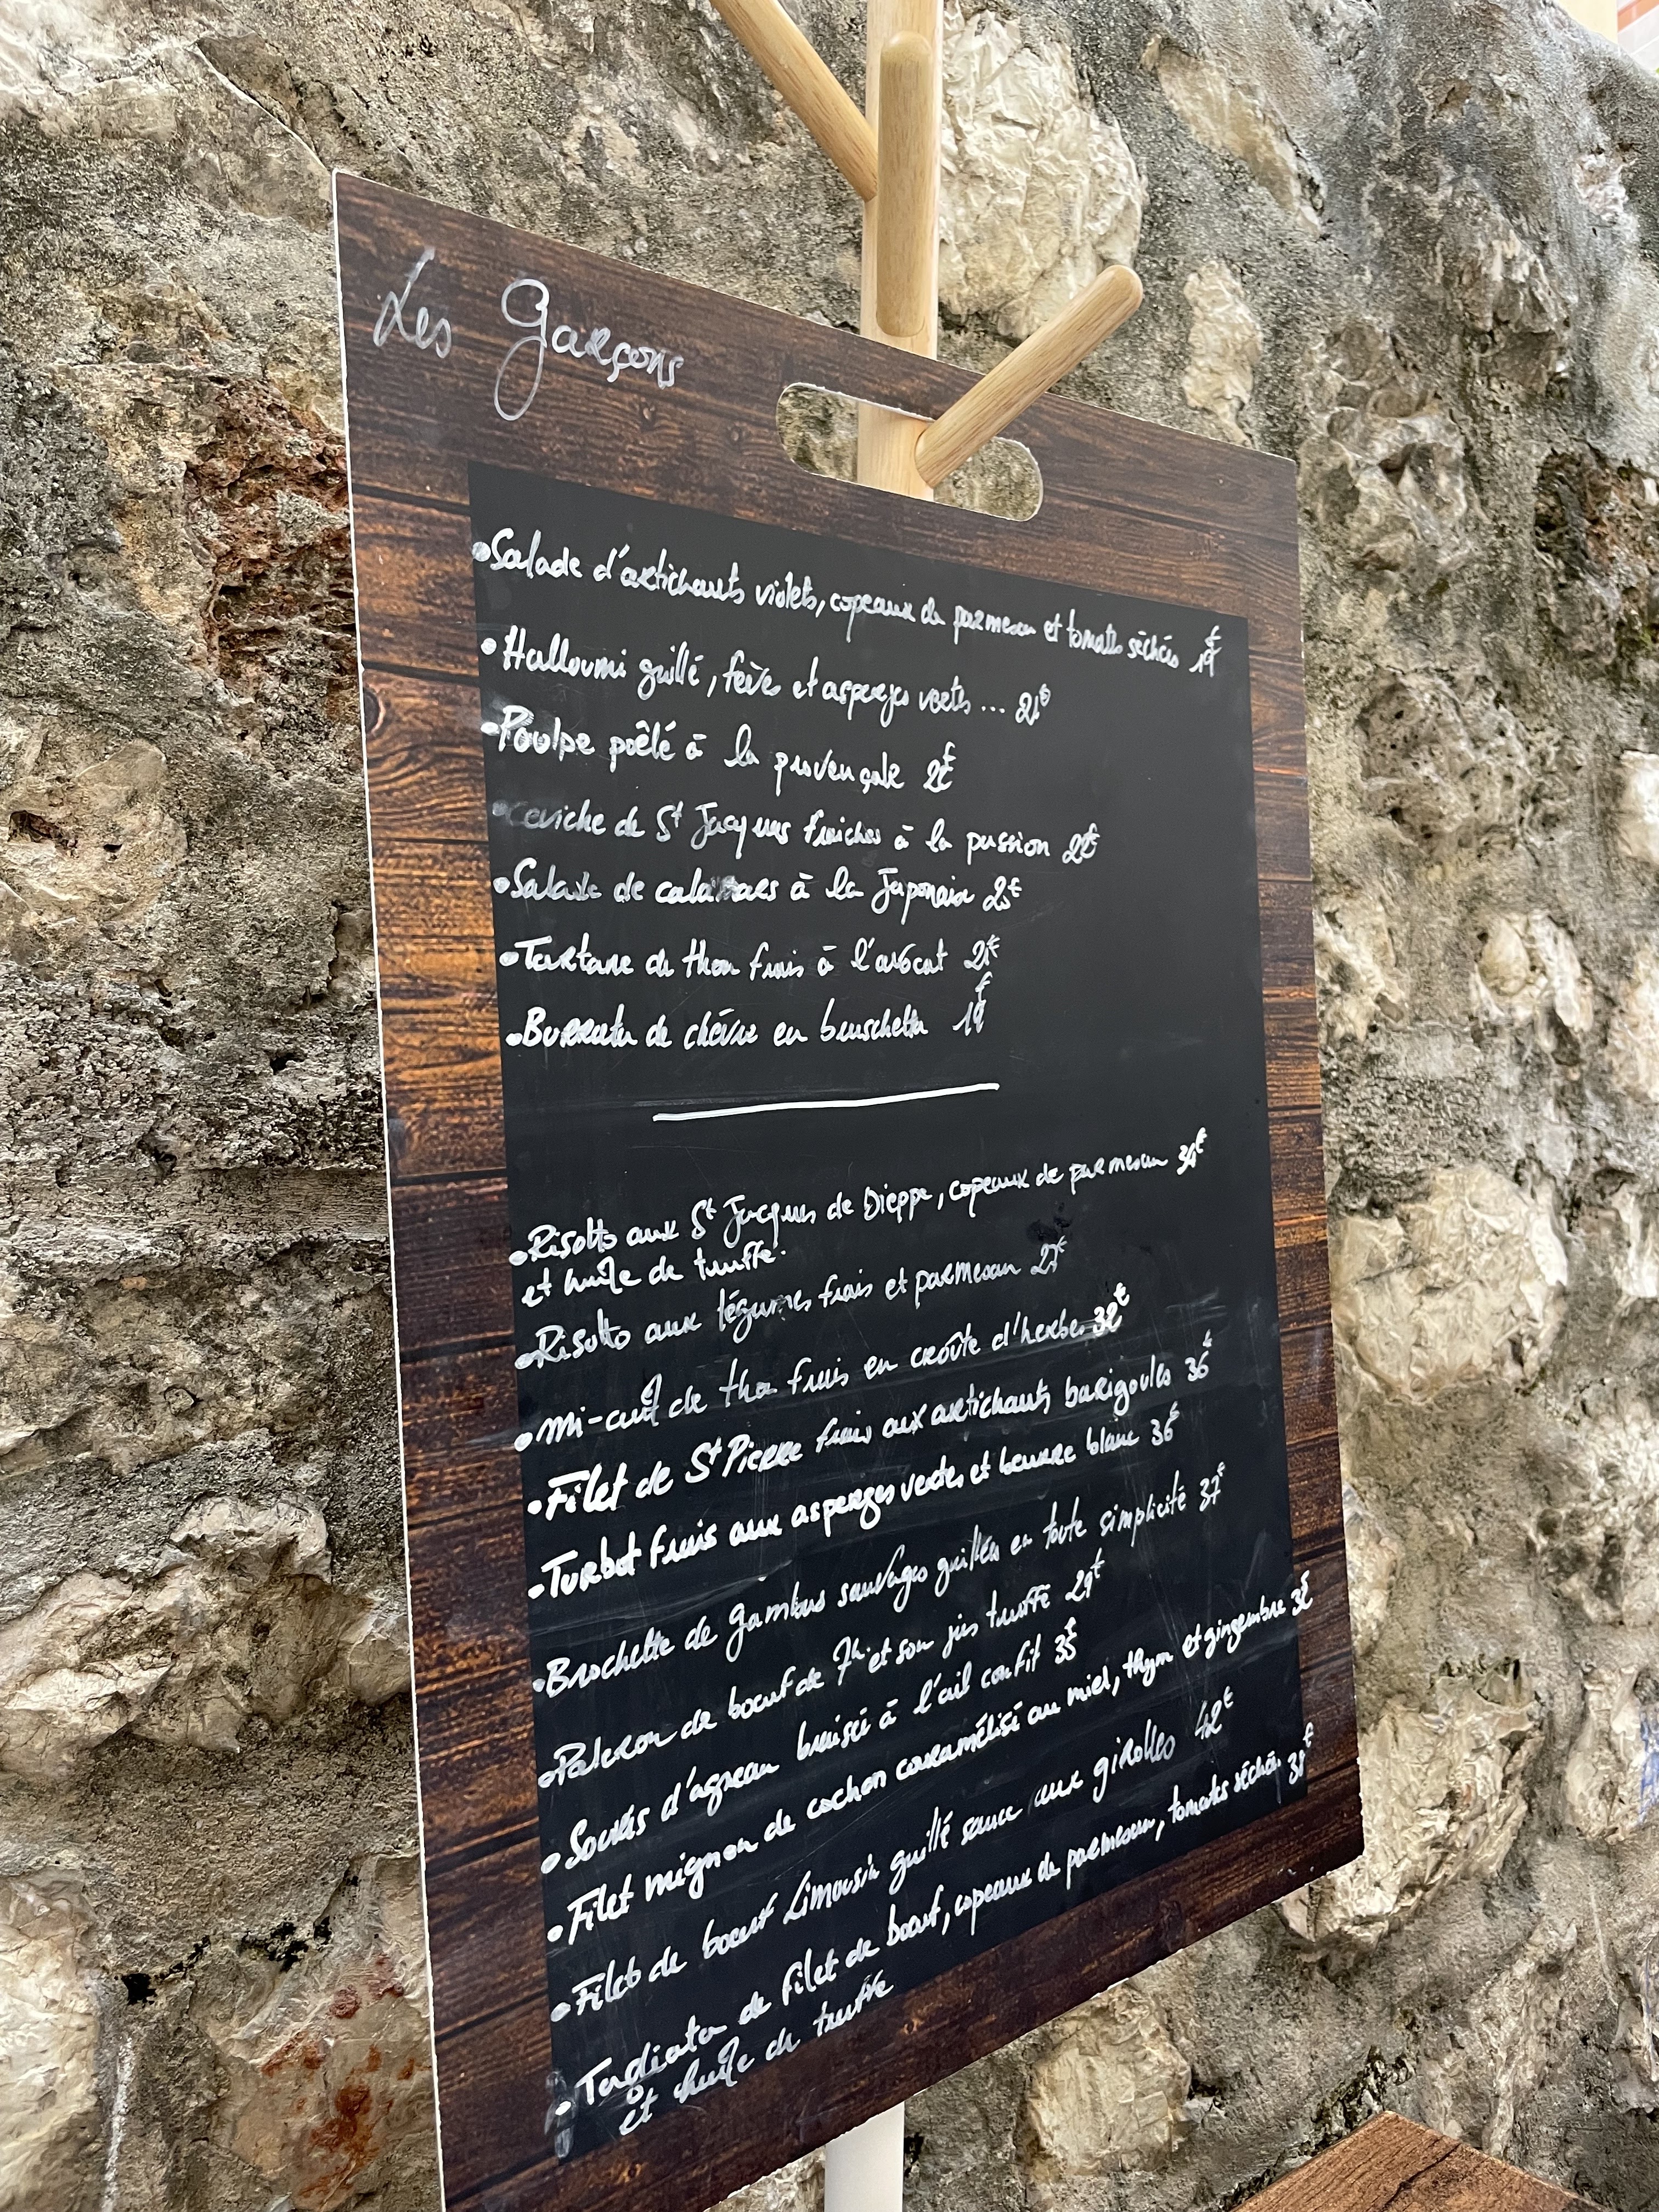 Les Garçons
•Salade d'artichauts violets, copeaux de parmesan et tomates séchées 19€
•Halloumi grillé, fèves et asperges vertes ... 21€
•Poulpe poêlé à la provençale
•Ceviche de St Jacques fraiches à la passion
•Salade de calamars à la Japonaise 23€
•Tartare de thon frais à l'avocat 21€
•Burrata de chèvre en bruschetta 19€
•Risotto aux St Jacques de Dieppe, copeaux de parmesan
et huile de truffe.
•Risotto aux légumes frais et parmesan 27€
•Mi-cuit de thon frais en croûte d'herbes 32€
•Filet de St Pierre frais aux artichauts barigoules 36€
•Turbot frais aux asperges vertes et beurre blanc 36€
•Brochette de gambas sauvages grillées en toute simplicité 37€
•Paleron de boeuf de 7h et son jus truffé 29€
•Souris d'agneau braisée à l'ail confit 35€
•Filet mignon de cochon caramélisé au miel, thym et gingembre
•Filet de boeuf Limousin grillé sauce aux girolles 42€
•Tagliata de filet de boeuf, copeaux de parmesan, tomates séchées
et huile de truffe